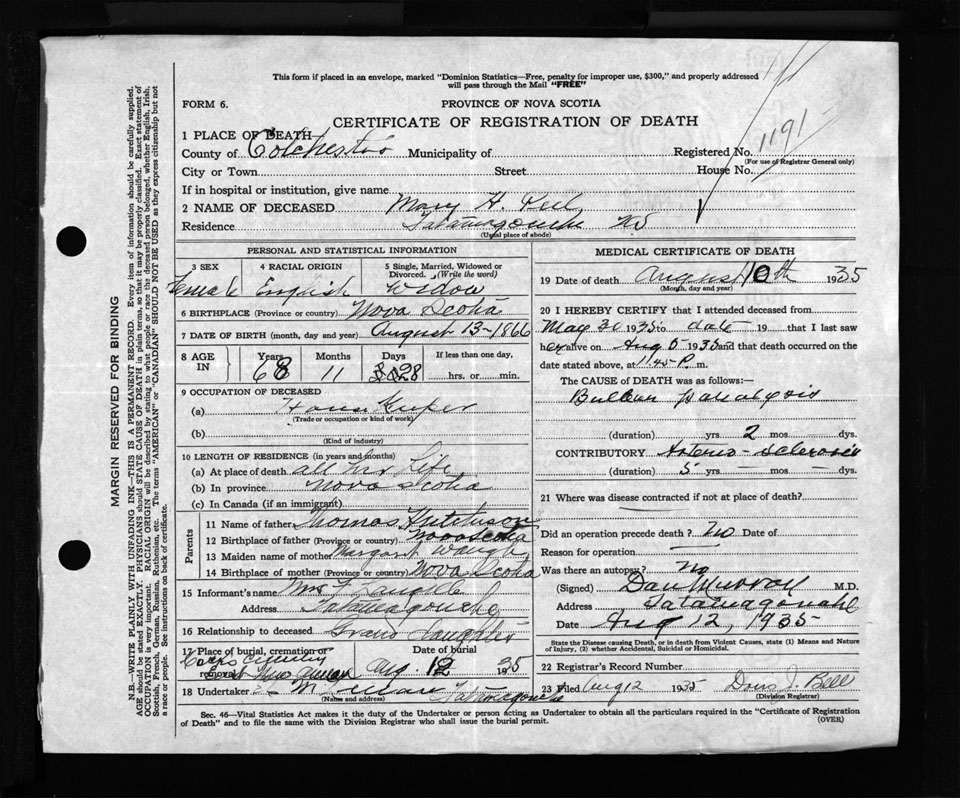 This form if placed in an envelope, marked "Dominion Statistics—Free, penalty for improper use, $300," and properly addressed
will pass through the Mail "FREE"
FORM 6.
PROVINCE OF NOVA SCOTIA
CERTIFICATE OF REGISTRATION OF DEATH
1 PLACE OF DEATH
County of Colchester Municipality of Registered No. 1191
(For use of Registrar General only)
City or Town Street House No.
If in hospital or institution, give name
2 NAME OF DECEASED Mary H.
Residence Tatamagouche NS
(Usual place of abode)
PERSONAL AND STATISTICAL INFORMATION
3 SEX 4 RACIAL ORIGIN 5 Single, Married, Widowed or Divorced. (Write the word)
Female English Widow
6 BIRTHPLACE (Province or country) Nova Scotia
7 DATE OF BIRTH (month, day and year) August 13-1866
8 AGE IN Years Months Days If less than one day,
68 11 28 hrs. or min.
9 OCCUPATION OF DECEASED
(a) House Keeper
(Trade or occupation or kind of work)
(b)
(Kind of industry)
10 LENGTH OF RESIDENCE (in years and months)
(a) At place of death all her Life
(b) In province Nova Scotia
(c) In Canada (if an immigrant)
Parents
11 Name of father Thomas Hutchison
12 Birthplace of father (Province or country) Nova Scotia
13 Maiden name of mother Margaret Waugh
14 Birthplace of mother (Province or country) Nova Scotia
15 Informant's name Mrs F
Address Tatamagouche
16 Relationship to deceased Grand Daughter
17 Place of burial, cremation or removal Date of burial
Cemetery Aug. 12 35
18 Undertaker Tatamagouche
(Name and address)
MEDICAL CERTIFICATE OF DEATH
19 Date of death August 10th 1935
(Month, day and year)
20 I HEREBY CERTIFY that I attended deceased from
May 1935 to date 19 that I last saw
her alive on Aug 1935 and that death occurred on the
date stated above, at 11.45 P. m.
The CAUSE OF DEATH was as follows:—
Bulbar paralysis
(duration) yrs 2 mos dys.
CONTRIBUTORY Arterio-sclerosis
(duration) 5 yrs — mos — dys.
21 Where was disease contracted if not at place of death?
Did an operation precede death? No Date of
Reason for operation
Was there an autopsy? No
(Signed) Dan Murray M.D.
Address Tatamagouche
Date Aug 12, 1935
State the Disease causing Death, or in death from Violent Causes, state (1) Means and Nature
of Injury, (2) whether Accidental, Suicidal or Homicidal.
22 Registrar's Record Number
23 Filed Aug 12 1935 J. Bell
(Division Registrar)
Sec. 46—Vital Statistics Act makes it the duty of the Undertaker or person acting as Undertaker to obtain all the particulars required in the "Certificate of Registration
of Death" and to file the same with the Division Registrar who shall issue the burial permit.
(OVER)
MARGIN RESERVED FOR BINDING
N.B.—WRITE PLAINLY WITH UNFADING INK—THIS IS A PERMANENT RECORD. Every item of information should be carefully supplied.
AGE should be stated EXACTLY. PHYSICIANS should STATE CAUSE OF DEATH in plain terms, so that it may be properly classified. Exact statement of
OCCUPATION is very important. RACIAL ORIGIN will be described by stating to what people or race the deceased person belonged, whether English, Irish,
Scottish, French, German, Russian, Ruthenian, etc. The terms "AMERICAN" or "CANADIAN" SHOULD NOT BE USED as they express citizenship but not
a race or people. See instructions on back of certificate.